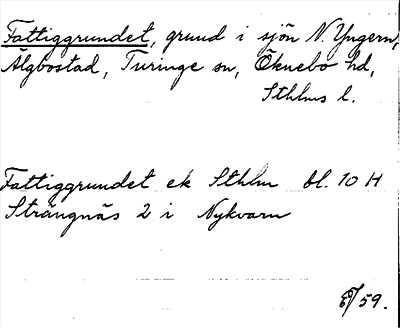 Fattiggrundet, grund i sjön N. Yngern,
Älgbostad, Turinge sn, Öknebo hd,
Sthlms l.
Fattiggrundet ek Sthlm bl. 10 H
Strängnäs 2 i Nykvarn
/59.